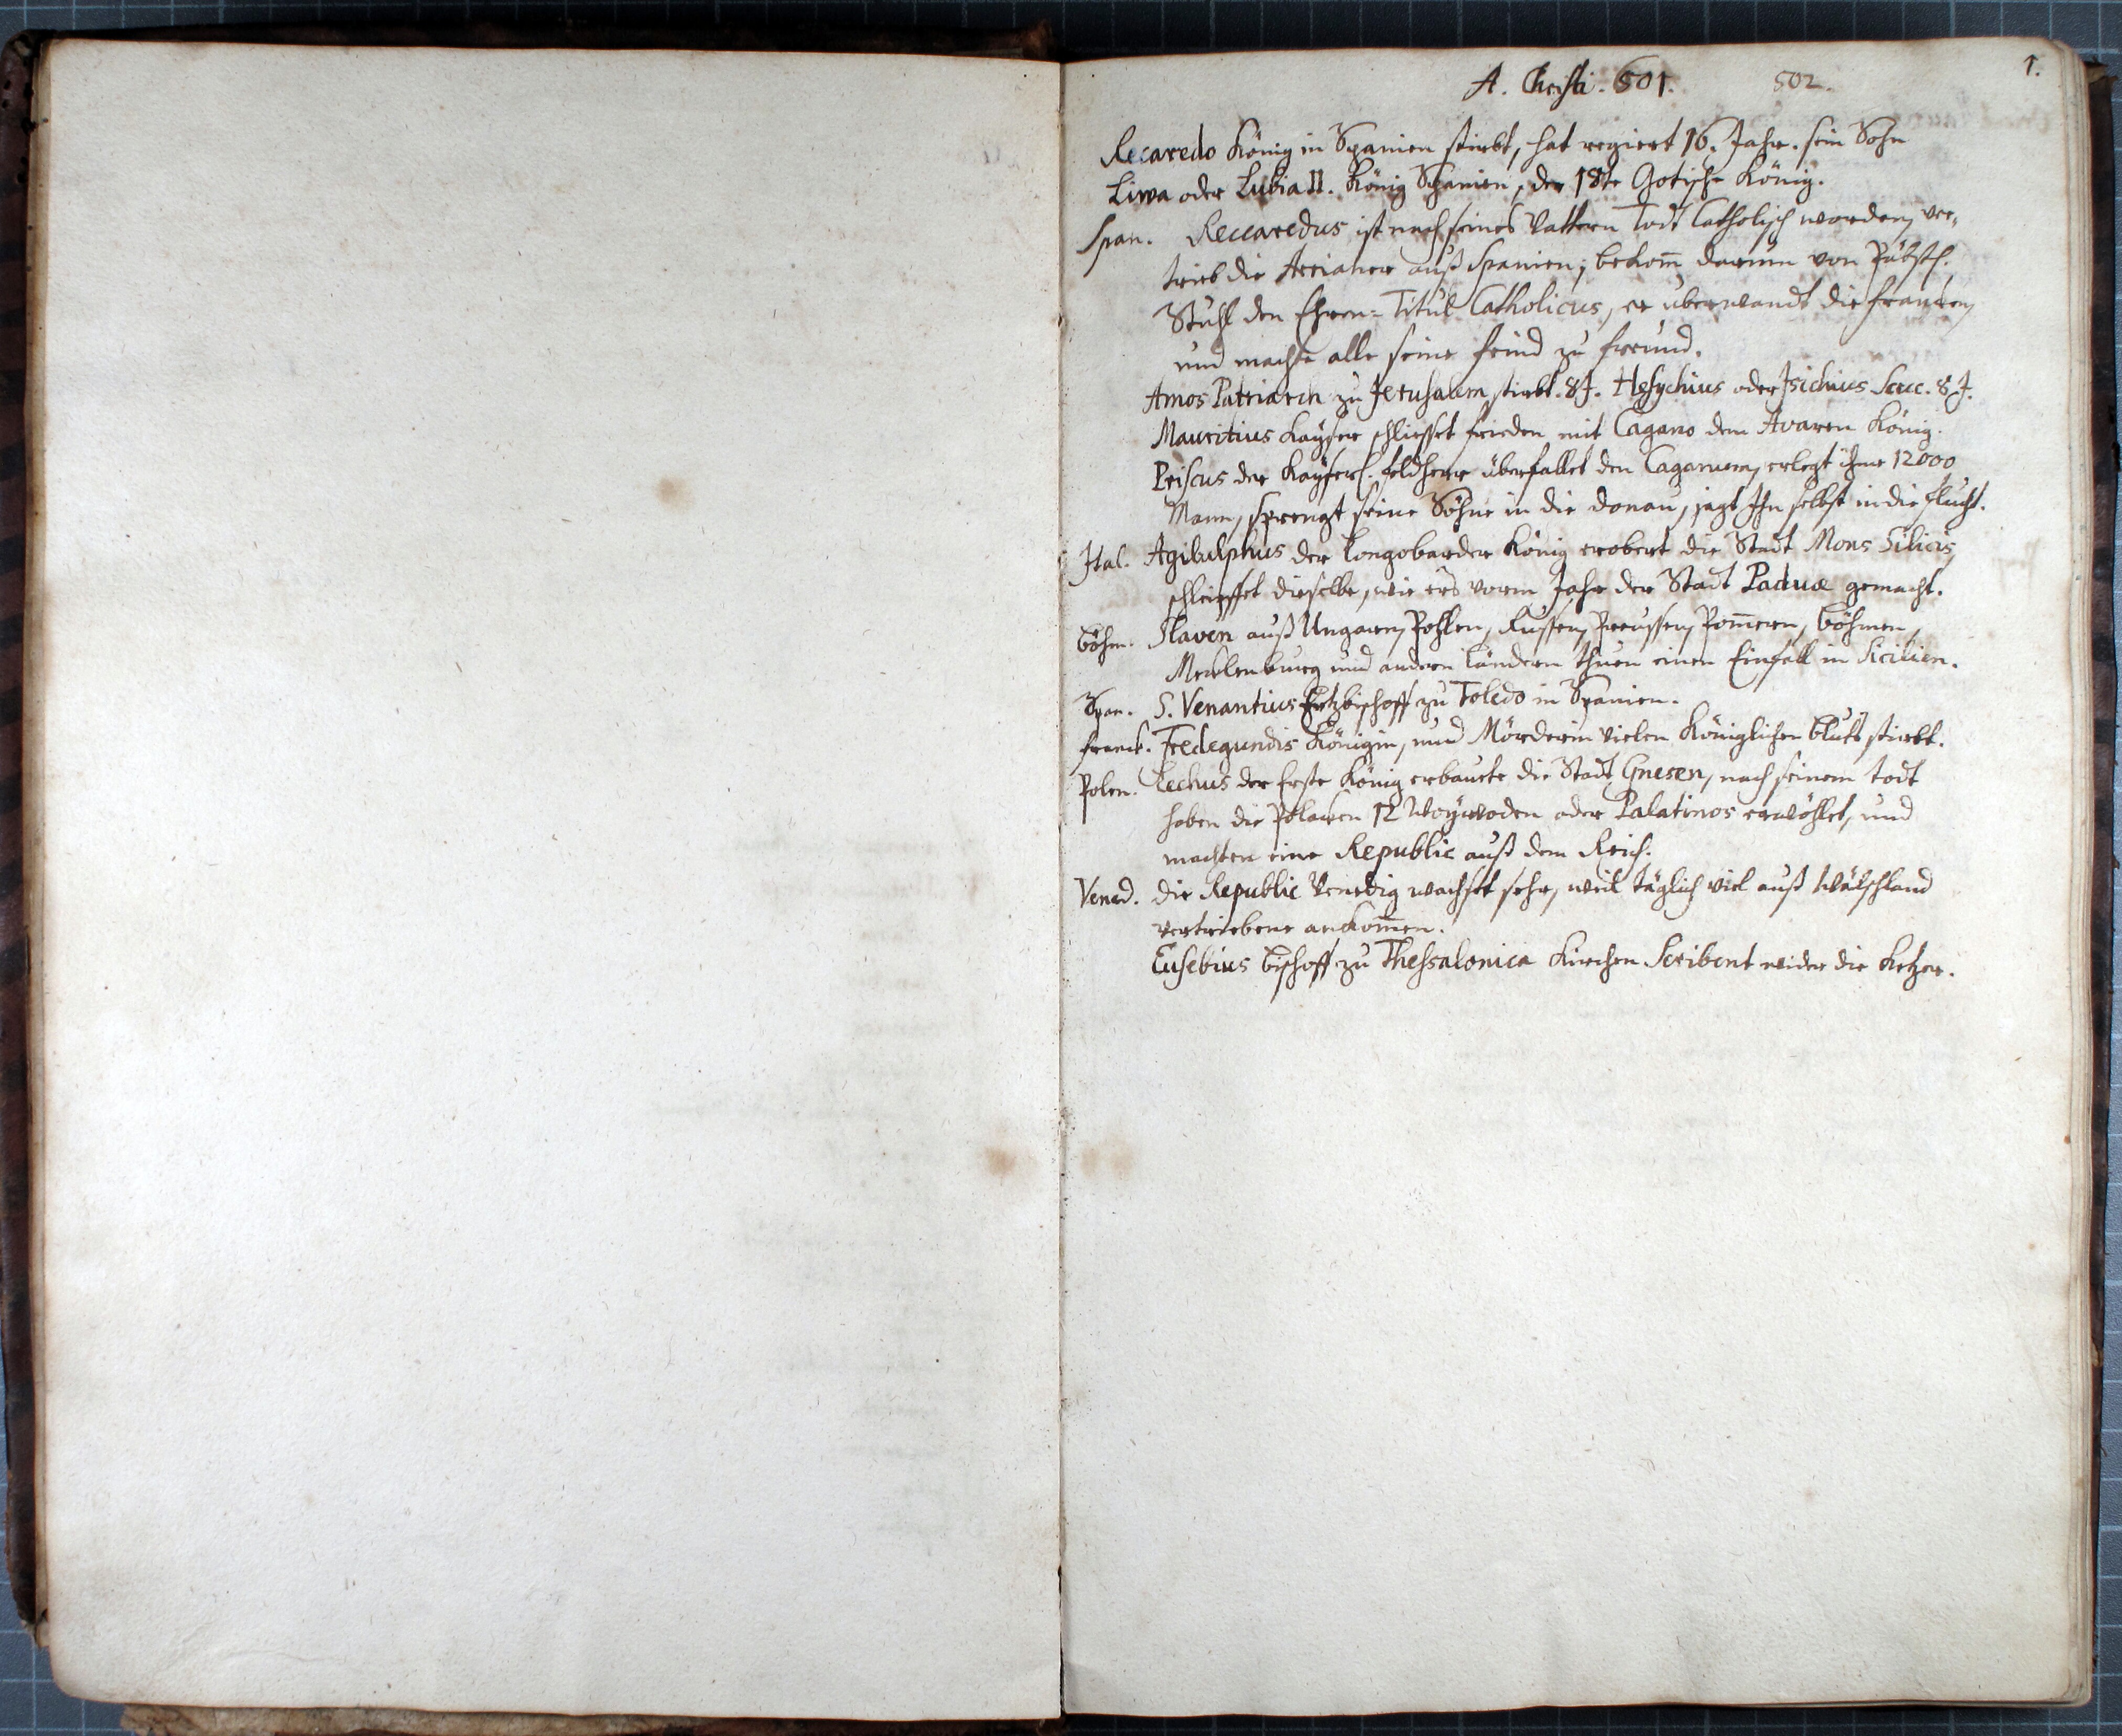 1.
A. Christi. 601. 502.
Recaredo König in Spanien stirbt, hat regiert 16. Jahr. sein Sohn
Liwa oder Lubia II. König Spanien, der 18te Gotische König.
Span. Reccaredus ist nach seines Vattern Todt Catholisch worden, ver=
trieb die Arrianer auß Spanien; bekom̄ darum von Päbstl.
Stuhl den Ehren=Titul Catholicus, er uberwandt die francken,
und machte alle seine feind zu freund.
Amos Patriarch zu Jerusalem stirbt. 8J. Hesychius oder Isichius Succ. 8 J.
Mauritius Kayser schliesset frieden mit Cagano dem Avaren König.
Priscus der Kayserl. feldherr überfallet den Caganum, erlegt ihme 12000
Mann, sprengt seine Söhne in die Donau, jagt Ihn selbst in die flucht.
Ital. Agilulphus der Longobarder König erobert die Stadt Mons Silicis,
schleiffet dieselbe, wie ers vorm Jahr der Stadt Paduæ gemacht.
Böhm. Slaven auß Ungarn, Pohlen, Russen, Preussen, Pom̄ern, Böhmen,
Mecklenburg und andern Ländern thuen einen Einfall in Sicilien.
Span. S. Venantius Ertzbischoff zu Toledo in Spanien.
franck. Fredegundis Königin, und Mörderin vielen Königlichen Bluts stirbt.
Polen. Lechus der Erste König erbaute die Stadt Gnesen, nach seinem todt
haben die Polacken 12 Woywoden oder Palatinos erwöhlet, und
machten eine Republic auß dem Reich.
Vened. die Republic Venedig wachset sehr, weil täglich viel auß Wälschland
vertriebene ankom̄en.
Eusebius Bischoff zu Thessalonica Kirchen Scribent wider die Ketzer.